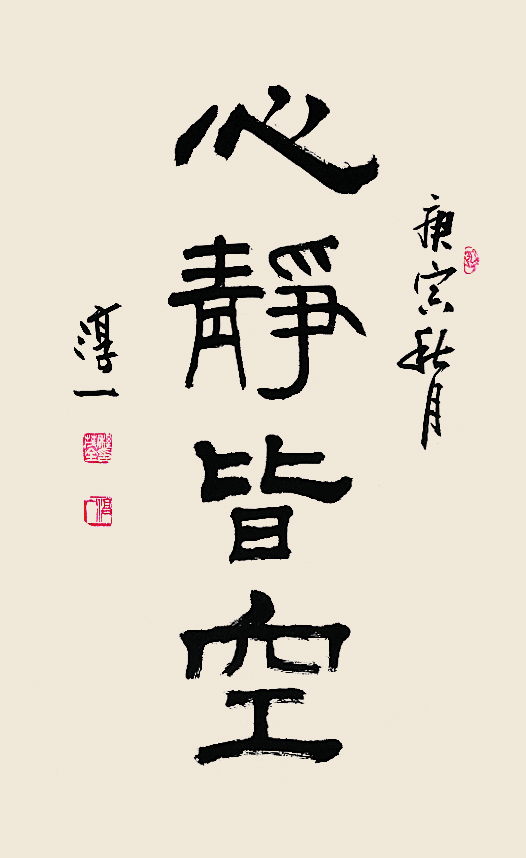 庚寅秋月
心靜皆空
淳一